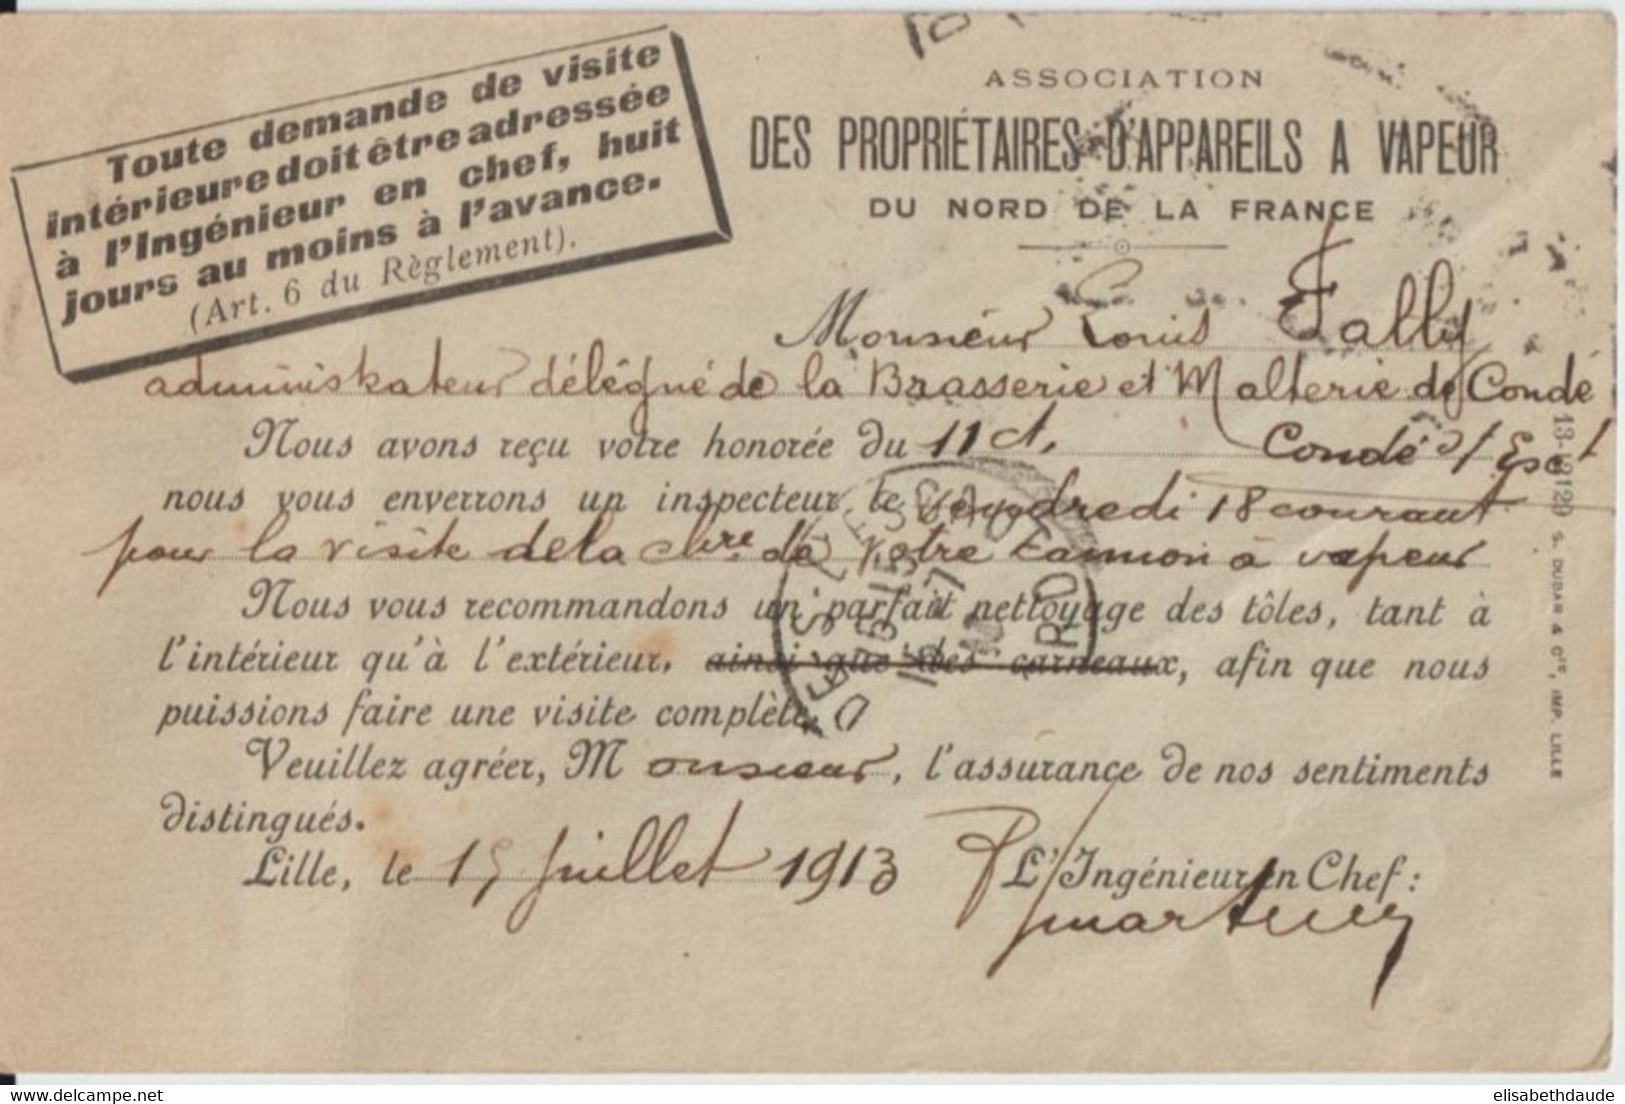 Toute demande de visite
intérieure doit être adressée
à l'Ingénieur en chef, huit
jours au moins à l'avance.
(Art. 6 du Règlement).
ASSOCIATION
DES PROPRIÉTAIRES D'APPAREILS A VAPEUR
DU NORD DE LA FRANCE
Monsieur Louis Fally
administrateur délégué de la Brasserie et Malterie de Condé
Nous avons reçu votre honorée du 11 ct. Condé s/ Esct
nous vous enverrons un inspecteur, le vendredi 18 courant
pour la visite de la chre de votre camion à vapeur
Nous vous recommandons un parfait nettoyage des tôles, tant à
l'intérieur qu'à l'extérieur, ainsi que des carneaux, afin que nous
puissions faire une visite complète.
Veuillez agréer, Monsieur, l'assurance de nos sentiments
distingués.
Lille, le 15 Juillet 1913 L'Ingénieur en Chef :
S. DUBAR & Cie, IMP. LILLE
www.delcampe.net
elisabethdaude